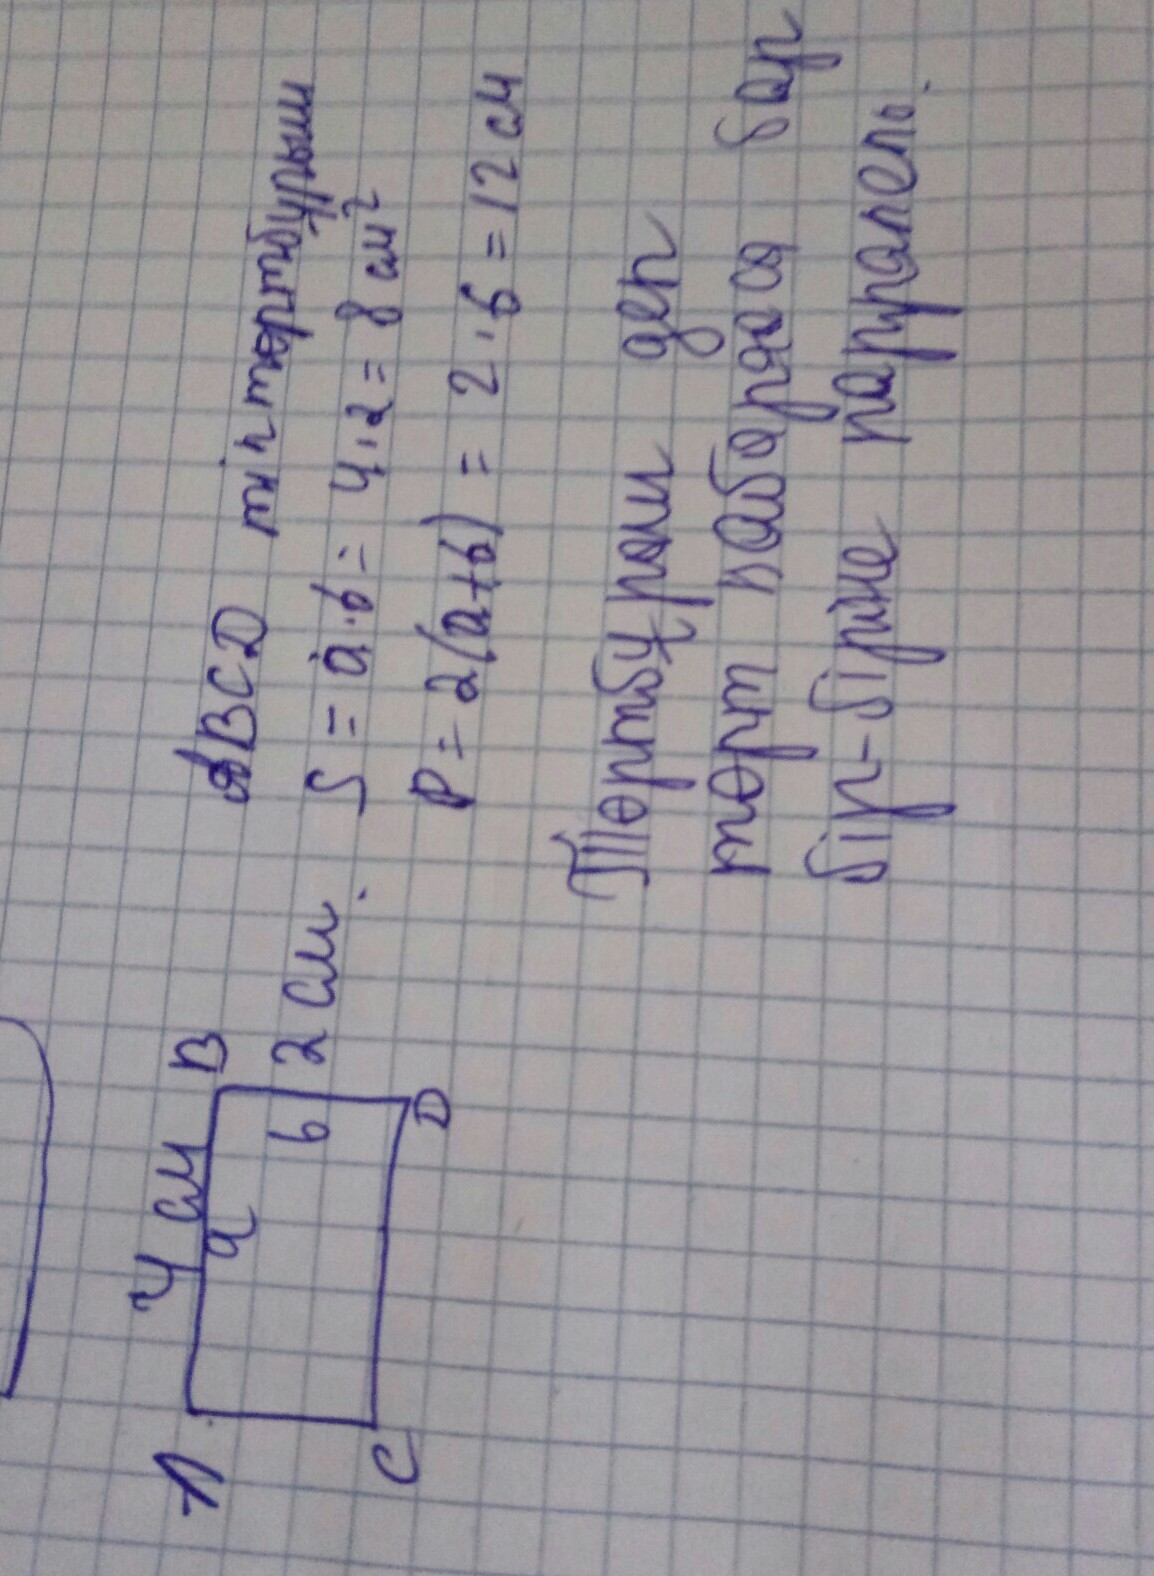 A
4 см
B
a
b
2 см.
C
D
ABCD тік төртбұрыш
S = a·b = 4·2 = 8 см²
P = 2(a+b) = 2·6 = 12 см
Төртбұрыш деп
төрт қабырғасы бар
бір-біріне параллель.